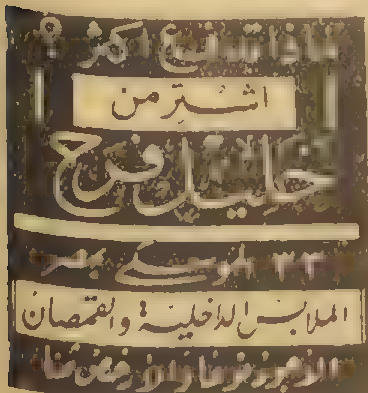 لماذا تدفع اكثر؟
اشتر من
خليل فرح
٣٣ الموسكي بمصر
الملابس الداخلية والقمصان